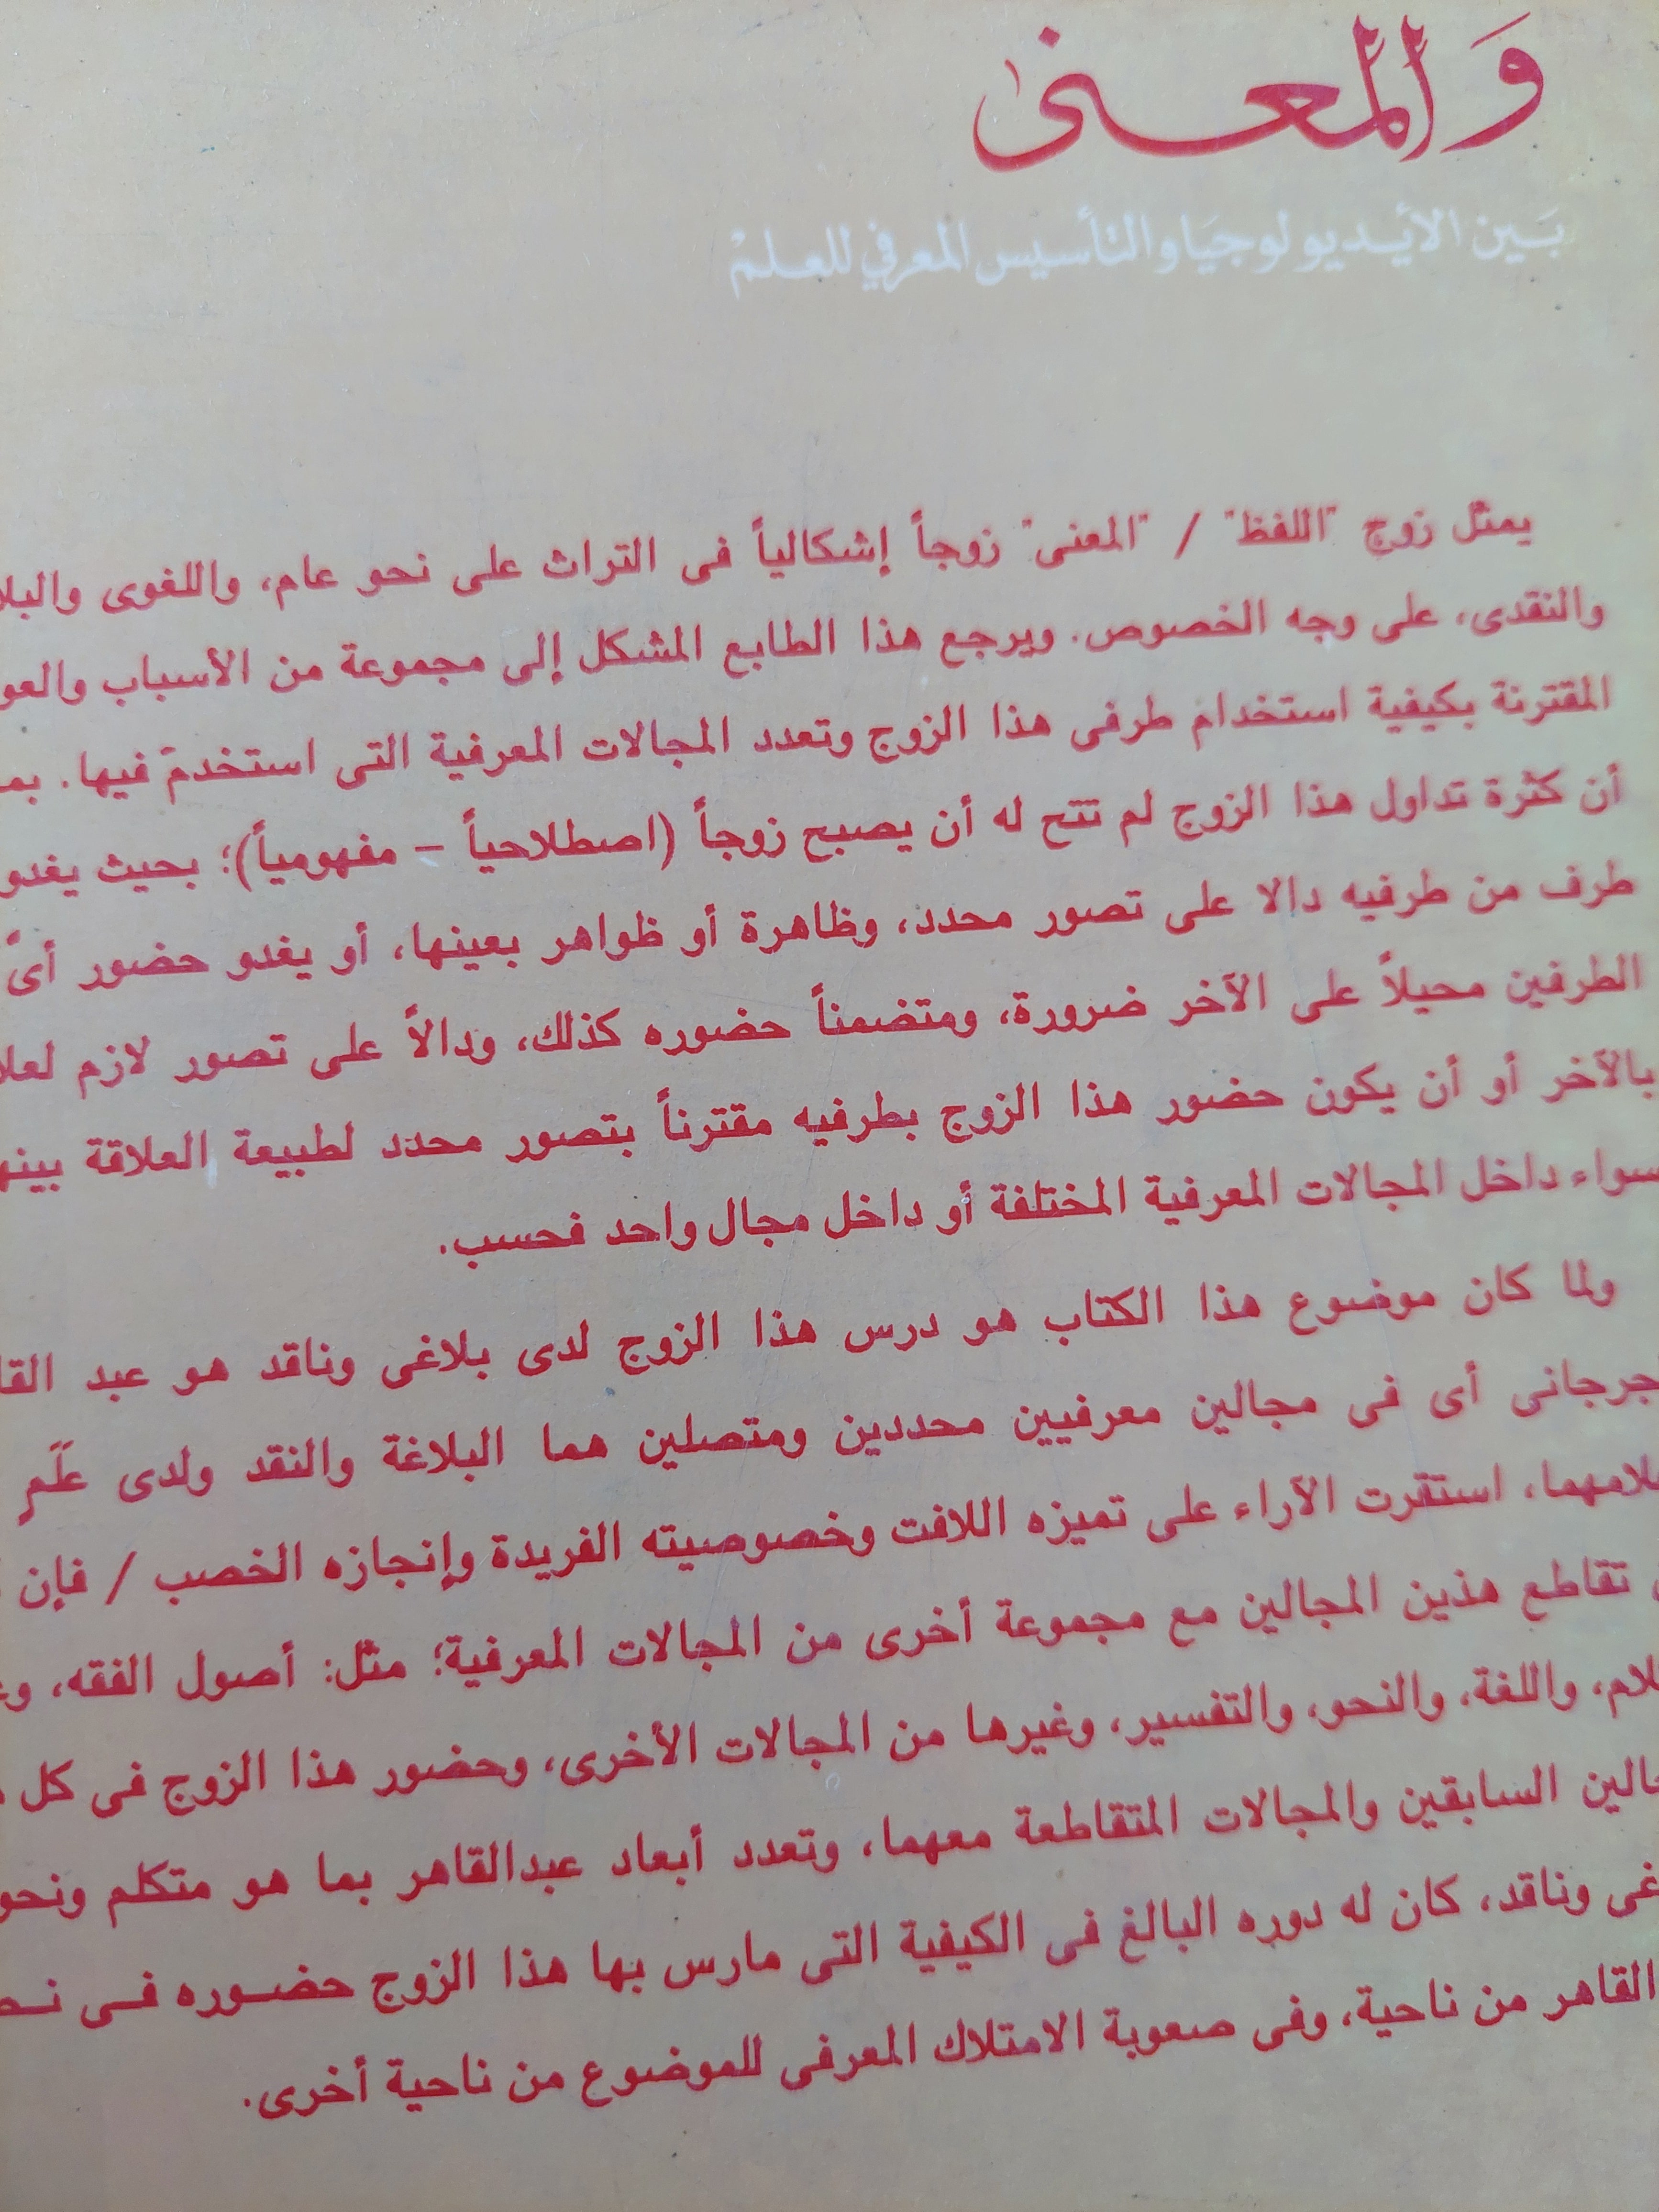 وَالمعنى
بَين الأيديولوجيَا والتأسيس المعرفي للعلمْ
يمثل زوج "اللفظ" / "المعنى" زوجاً إشكالياً فى التراث على نحو عام، واللغوى
والنقدى، على وجه الخصوص. ويرجع هذا الطابع المشكل إلى مجموعة من الأسباب
المقترنة بكيفية استخدام طرفى هذا الزوج وتعدد المجالات المعرفية التى استخدمَ فيها.
أن كثرة تداول هذا الزوج لم تتح له أن يصبح زوجاً (اصطلاحياً - مفهومياً)؛ بحيث يغدو
طرف من طرفيه دالا على تصور محدد، وظاهرة أو ظواهر بعينها، أو يغدو حضور أىّ
الطرفين محيلاً على الآخر ضرورة، ومتضمناً حضوره كذلك، ودالاً على تصور لازم
بالآخر أو أن يكون حضور هذا الزوج بطرفيه مقترناً بتصور محدد لطبيعة العلاقة
سواء داخل المجالات المعرفية المختلفة أو داخل مجال واحد فحسب.
ولما كان موضوع هذا الكتاب هو درس هذا الزوج لدى بلاغى وناقد هو عبد
جرجانى أى فى مجالين معرفيين محددين ومتصلين هما البلاغة والنقد ولدى عَلَمٍ
لامهما، استقرت الآراء على تميزه اللافت وخصوصيته الفريدة وإنجازه الخصب / فإن
تقاطع هذين المجالين مع مجموعة أخرى من المجالات المعرفية؛ مثل: أصول الفقه،
لام، واللغة، والنحو، والتفسير، وغيرها من المجالات الأخرى، وحضور هذا الزوج فى كل
الين السابقين والمجالات المتقاطعة معهما، وتعدد أبعاد عبدالقاهر بما هو متكلم ونحو
غى وناقد، كان له دوره البالغ فى الكيفية التى مارس بها هذا الزوج حضوره فى
القاهر من ناحية، وفى صعوبة الامتلاك المعرفى للموضوع من ناحية أخرى.